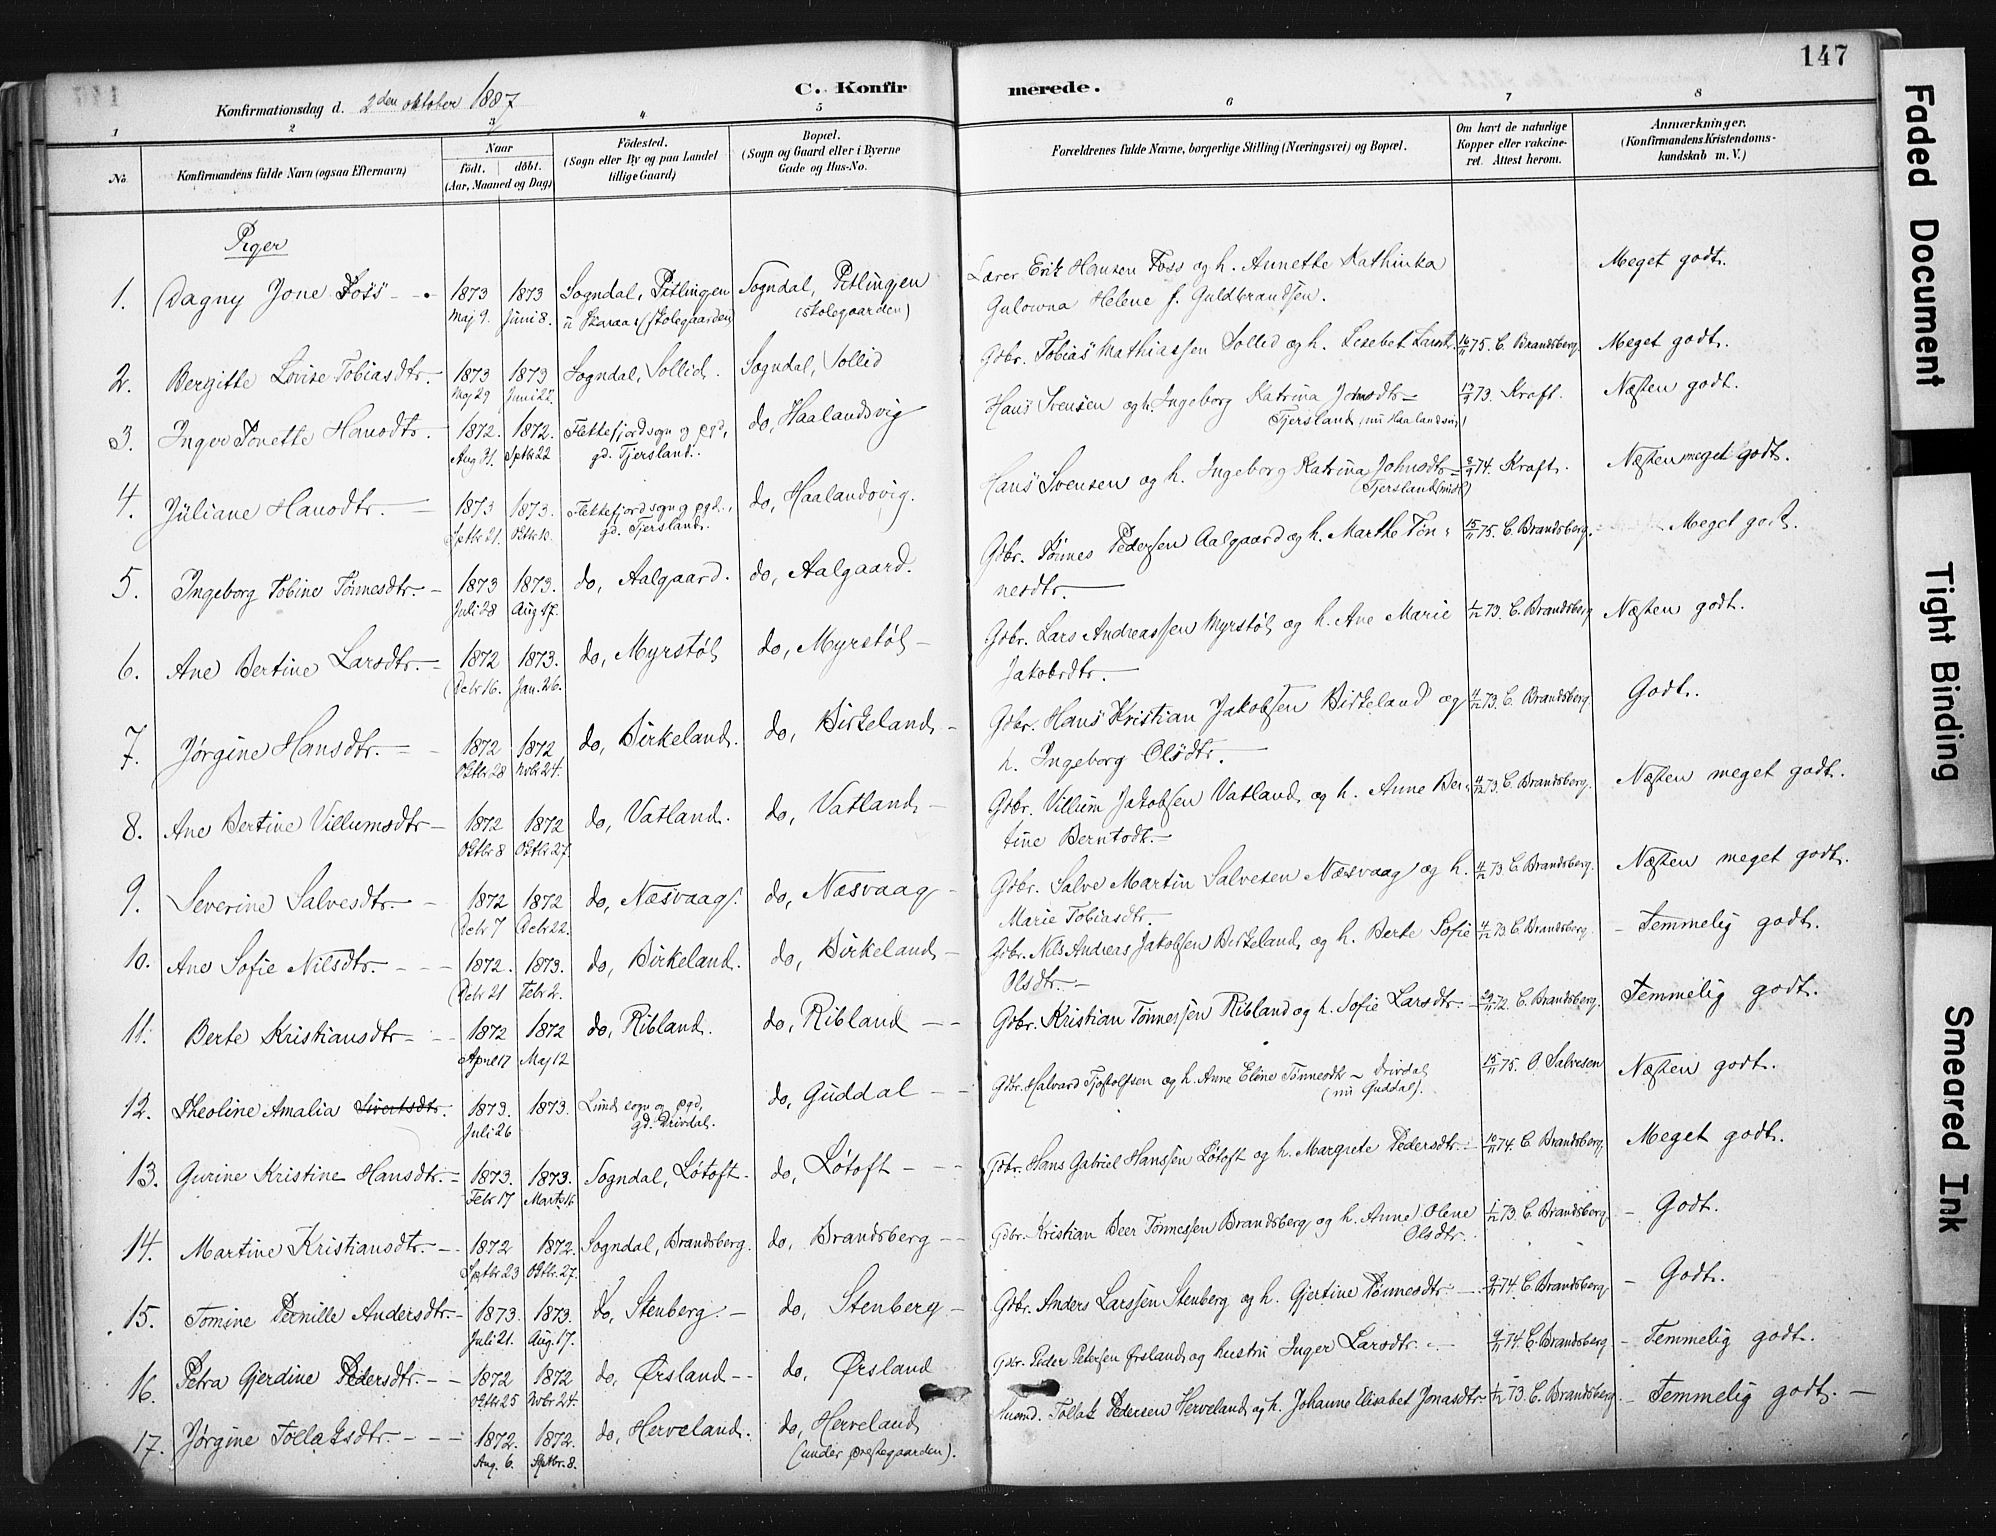 147
Konfirmationsdag d. 2den oktober 1887
C. Konfirmerede.
1 2 3 4 5 6 7 8
No.
Konfirmandens fulde Navn (ogsaa Efternavn)
Naar
født. døbt.
(Aar, Maaned og Dag)
Födested.
(Sogn eller By og paa Landet
tillige Gaard)
Bopæl.
(Sogn og Gaard eller i Byerne
Gade og Hus-No.
Forældrenes fulde Navne, borgerlige Stilling (Næringsvei) og Bopæl.
Om havt de naturlige
Kopper eller vakcine-
ret. Attest herom.
Anmærkninger.
(Konfirmandens Kristendoms-
kundskab m. V.)
Piger
1. Dagny Jone Foss 1873 Maj 9. 1873 Juni 8. Sogndal, Pitlingen (skolegaarden) Sogndal, Pitlingen (skolegaarden) Lærer Erik Hansen Foss og h. Annette Kathinka
Gulowna Helene f. Guldbrandsen. Meget godt.
2. Bergitte Lovise Tobiasdtr. 1873 Maj 29 1873 Juni 22. Sogndal, Sollid. Sogndal, Sollid Gdbr. Tobias Mathiassen Sollid og h. Lisebet 16/11 75. C. Brandsberg. Meget godt.
3. Inger Tonette Hansdtr. 1872. Aug 31. 1872. Sptbr 22 Flekkefjord sogn og pgd, gd. Tjersland. do, Haalandsvig Hans Svensen og h. Ingeborg Katrina Johnsdtr
Tjersland (nu Haalandsvig) 73. Kraft. Næsten godt.
4. Juliane Hansdtr. 1873 Sptbr 21. 1873. Oktbr 12. Flekkefjord sogn og pgd., gd. Tjersland. do, Haalandsvig. Hans Svensen og h. Ingeborg Katrina Johnsdtr
74. Kraft. Næsten meget godt.
5. Ingeborg Tobine Tönnesdtr. 1873 Juli 28 1873. Aug 17. do, Aalgaard. do, Aalgaard. Gdbr. Tönnes Pedersen Aalgaard og h. Marthe Tön-
nesdtr. 15/11 75. C. Brandsberg. Meget godt.
6. Ane Bertine Larsdtr. 1872 Debr 16. 1873. Jan. 26. do, Myrstøl do, Myrstøl Gdbr. Lars Andreassen Myrstøl og h. Ane Marie
Jakobsdtr. 1/12 73. C. Brandsberg Næsten godt.
7. Jørgine Hansdtr. 1872 Oktbr 28 1872 Nvbr 24. do, Birkeland. do, Birkeland Gdbr. Hans Kristian Jakobsen Birkeland og
h. Ingeborg Olsdtr. 4/12 73. C. Brandsberg. Godt.
8. Ane Bertine Villumsdtr 1872 Oktbr 8 1872 Oktbr 27. do, Vatland. do, Vatland Gdbr. Villum Jakobsen Vatland og h. Anne Ber-
tine Berntsdt. 4/12 73. C. Brandsberg. Næsten meget godt.
9. Severine Salvesdtr. 1872 Debr 7 1872 Debr 22. do, Næsvaag. do, Næsvaag Gdbr. Salve Martin Salvesen Næsvaag og h.
Marie Tobiasdtr. 4/12 73 C. Brandsberg. Næsten meget godt.
10. Ane Sofie Nilsdtr. 1872. Debr 21 1873. Febr 2. do, Birkeland. do, Birkeland Gdbr. Nils Andreas Jakobsen Birkeland og h. Berte Sofie
Olsdtr. 4/12 73 C. Brandsberg Temmelig godt.
11. Berte Kristiansdtr 1872 April 17 1872 Maj 12 do, Ribland. do, Ribland Gdbr. Kristian Tönnessen Ribland og h. Sofie Larsdtr. 29/11 72. C. Brandsberg. Temmelig godt.
12. Theoline Amalia Sivertsdtr. 1873. Juli 26 1873. Lunds sogn og pgd, gd. Drivdal. do, Guddal Gdbr. Halvard Tjostolfsen og h. Anne Eline Tönnesdt Drivdal
(nu Guddal). 15/11 75. O. Salvesen Næsten godt.
13. Gurine Kristine Hansdtr. 1873. Febr 17 1873. Marts 16 Sogndal, Løtoft do, Løtoft Gdbr. Hans Gabriel Hanssen Løtoft og h. Margrete Pedersdtr. 10/11 74. C. Brandsberg Meget godt.
14. Martine Kristiansdtr. 1872 Sptbr 23 1872. Oktbr. 27. Sogndal, Brandsberg. do, Brandsberg Gdbr. Kristian Beer Tönnessen Brandsberg og h. Anne Olene
Olsdtr. 1/12 73. C. Brandsberg Godt.
15. Tomine Pernille Andersdtr. 1873. Juli 21. 1873. Aug. 17. do, Stenberg. do, Stenberg Gdbr. Anders Larssen Stenberg og h. Gjertine Tönnesdtr. 9/11 74. C. Brandsberg Godt.
16. Petra Gjerdine Pedersdtr. 1872 Oktbr 25 1872 Nvbr 24. do, Ørsland do, Ørsland Gdbr. Peder Petersen Ørsland og hustru Inger Larsdtr. 9/11 74. C. Brandsberg Temmelig godt.
17. Jørgine Tollaksdtr. 1872. Aug. 6. 1872. Sptbr. 8. do, Herveland. do, Herveland (under præstegaarden). Husmd. Tollak Pedersen Herveland og h. Johanne Elisabet Jonasdtr. 1/12 73. C. Brandsberg. Temmelig godt.
Faded Document
Tight Binding
Smeared Ink